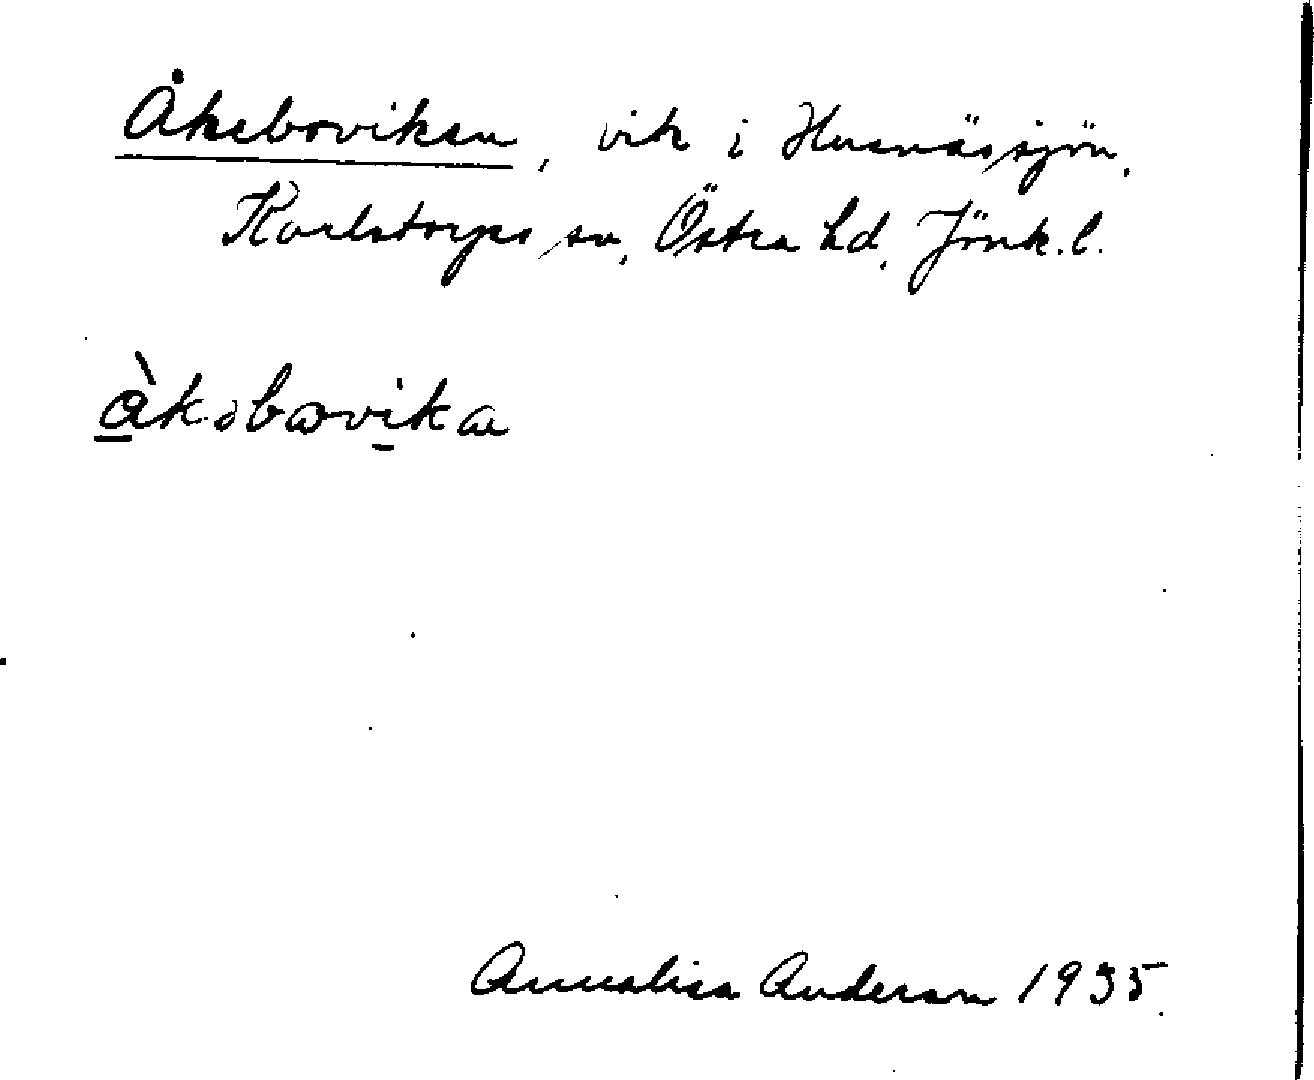 Åkeboviken, vik i Husnäsjön,
Karlstorps sn, Östra hd, Jönk. l.
åkəbovika
Annalisa Anderson 1935.